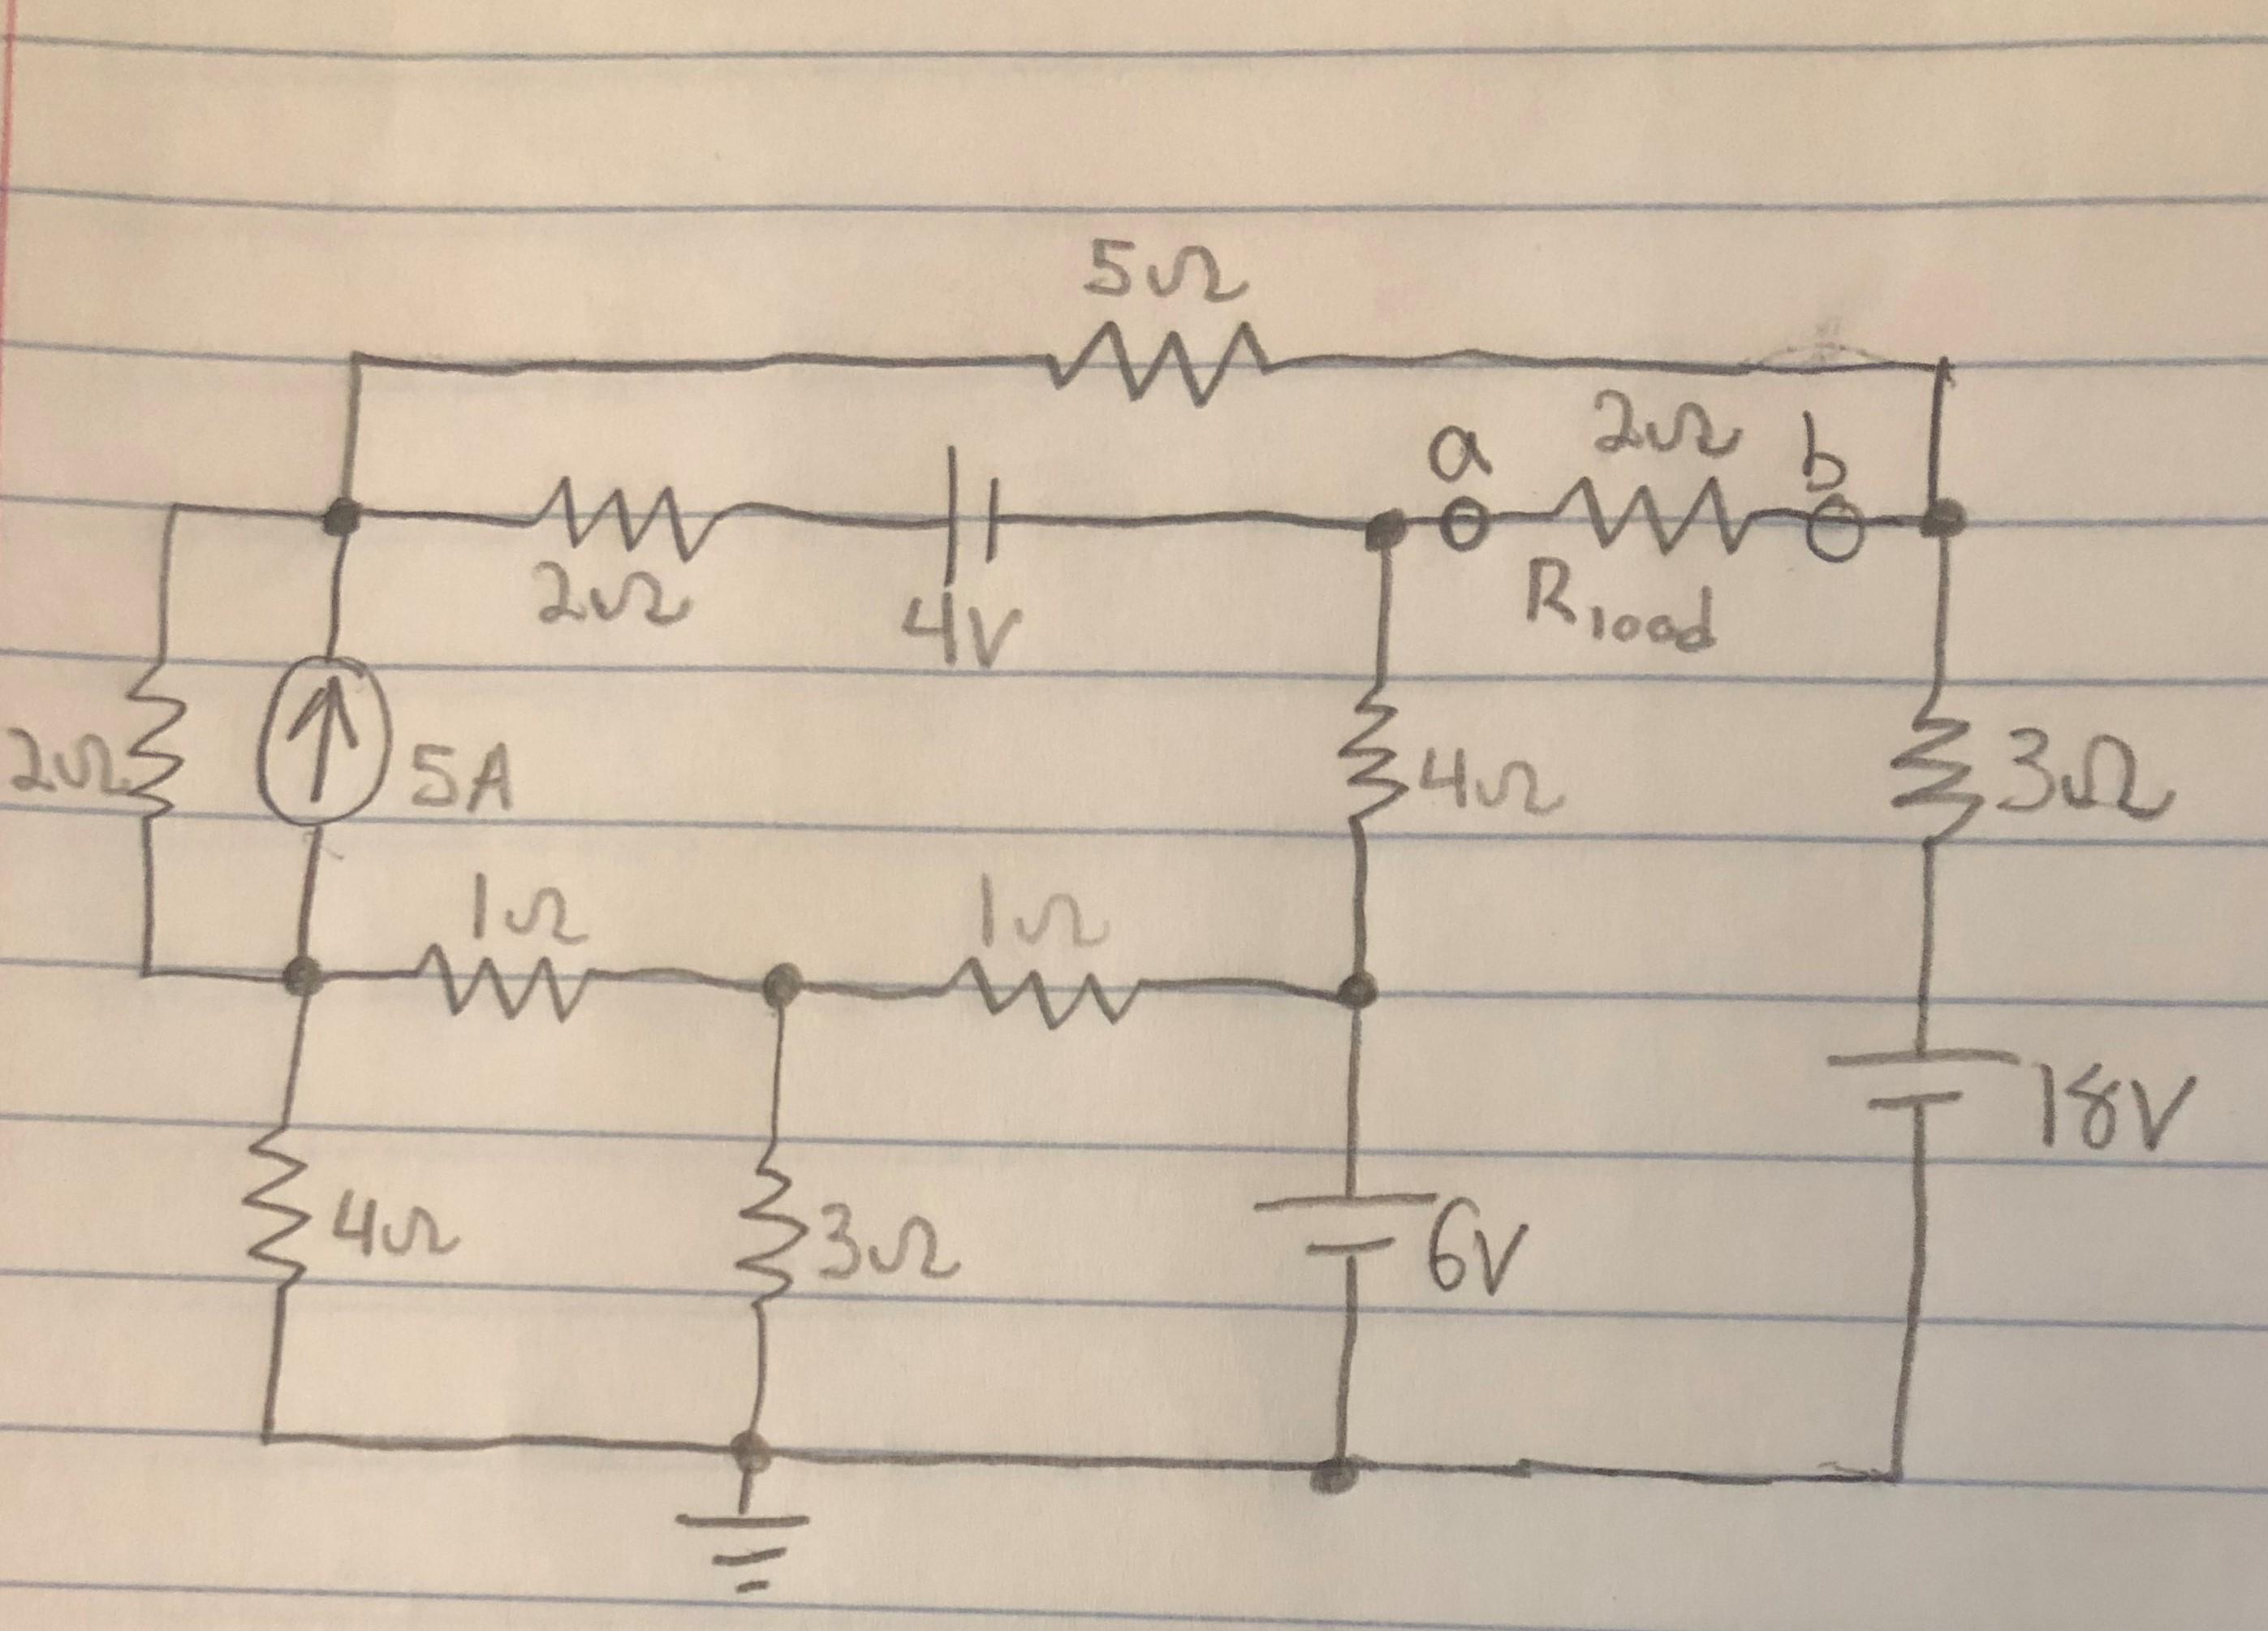 5Ω
a 2Ω b
2Ω 4V Rload
2Ω 5A 4Ω 3Ω
1Ω 1Ω
18V
4Ω 3Ω 6V